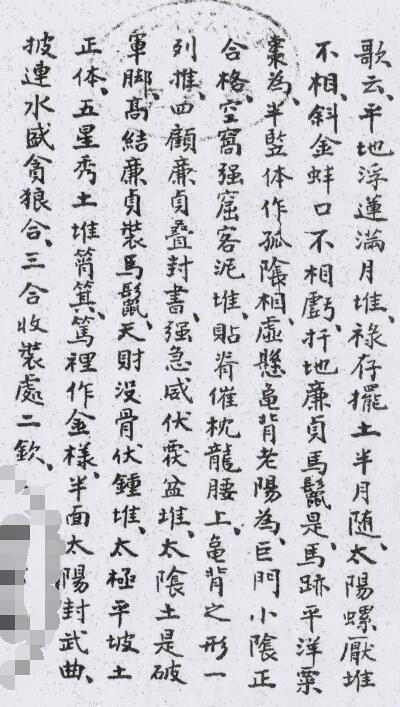 歌云、平地浮蓮滿月堆、祿存擺土半月随、太陽螺厴堆
不相、斜金蚌口不相虧、扦地廉貞馬鬣是、馬跡平洋粟
棗為、半監体作孤陰相、虛懸龜背老陽為、巨門小陰正
合格、空窩强窟客泥堆、貼脊催枕龍腰上、龜背之形一
列推、四顧廉貞叠封書、强急咸伏霞盆堆、太陰土是破
軍脚、髙結廉貞裝馬鬣、天財没骨伏鍾堆、太極平坡土
正体、五星秀土堆筲箕、篤裡作金樣、半面太陽封武曲、
披連水盛貪狼合、三合收裝處二欽、